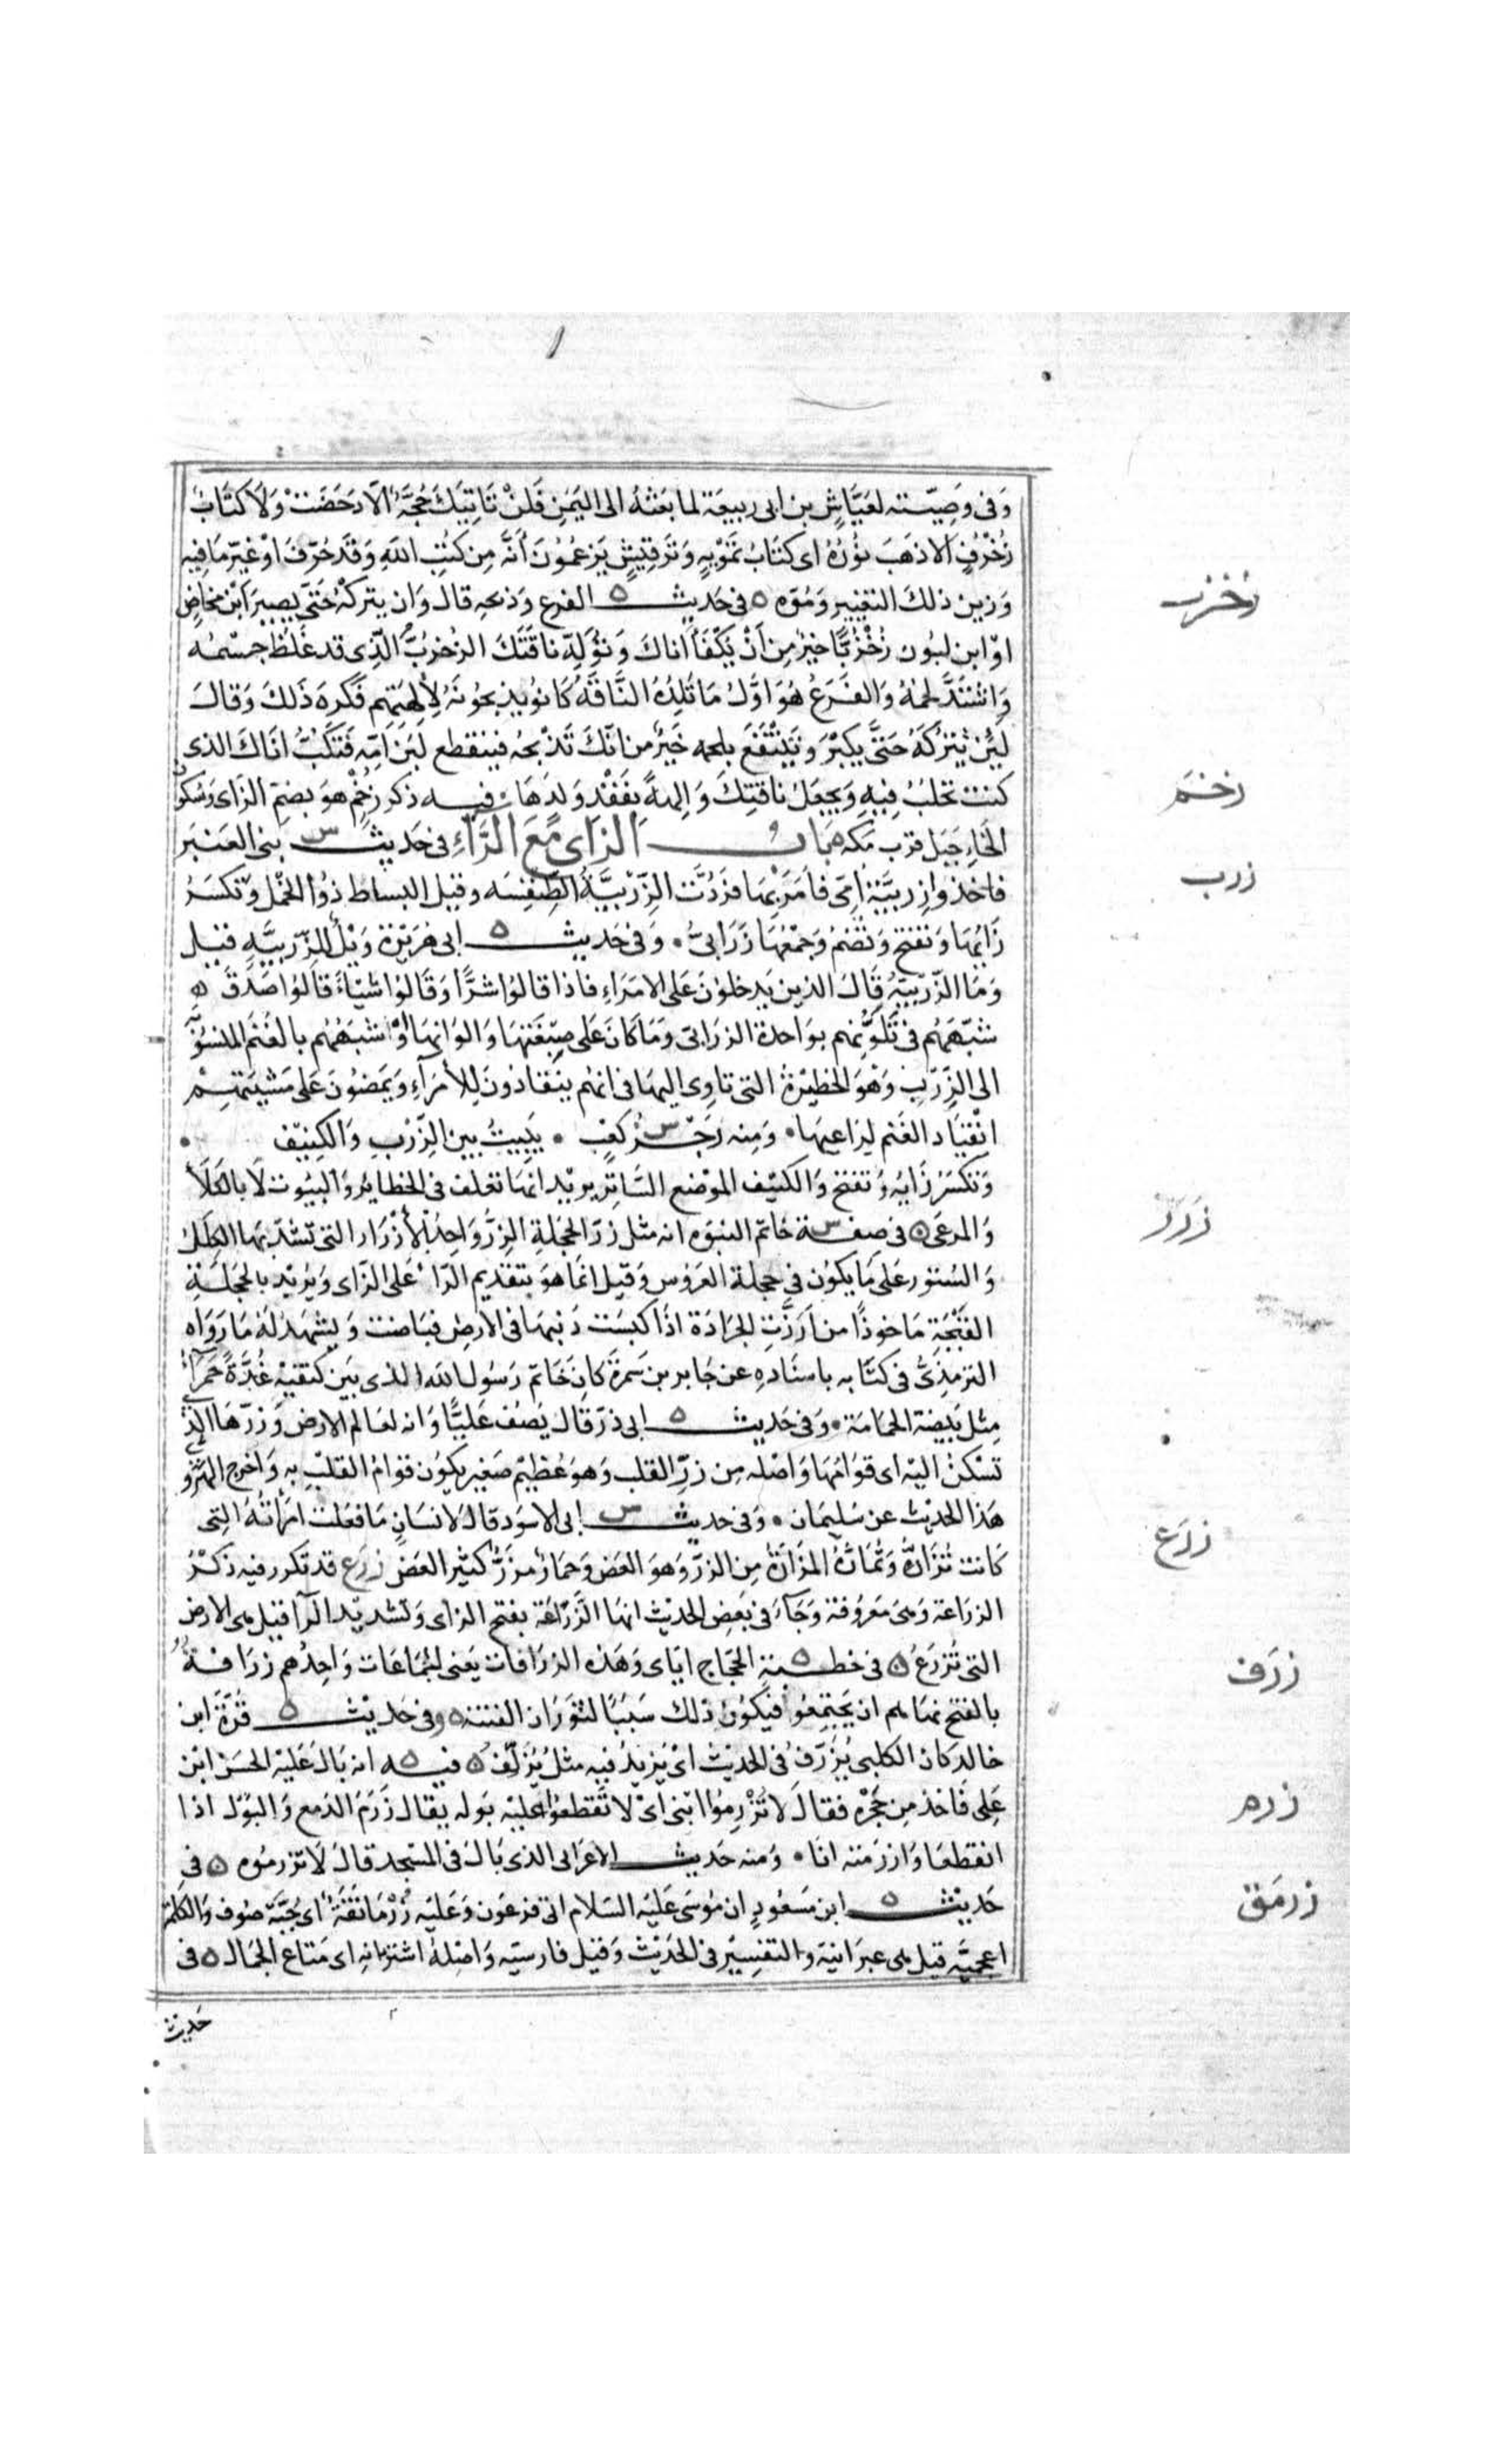 وَفى وَصِيّته لعَيَّاشِ بن ابى ربيعَة لما بعَثهُ الى اليَمَنِ فَلَنْ تَاتِيَكَ حُجَّةٌ الّا دَحَضَتْ وَلَا كتَابُ
زُخْرُفٍ الا ذهَبَ نُورُهُ اى كتَابُ تموْيهٍ وَترقيْشٍ يَزعمُونَ أنَّه مِن كتُبِ اللهِ وَقَد حُرّفَ اوْ غيّر مَا فيهِ
وَزين ذلك التغيير وَمُوّه ه فى حَديث ه الفرع وَذبحِهِ قال وَان يتركهُ حَتى يصِيرَ ابْن مخاضٍ
اوْ ابن لبُون زُخْزُبًّا خيرٌ مِن أَنْ يَكفَأ اناكَ وَتُوَلِّه نَاقَتَكَ الزخزُبُّ الّذى قد غلظ جسْمُه
وَاشْتَدَّ لحمُهُ وَالفَرَعُ هُوَ اوَّلُ مَا تَلِدُهُ النَّاقَةُ كَانوُا يذبحُونَهُ لِألِهَتهِم فَكَرِهَ ذَلكَ وَقالَ
لَئِنْ تَتْرُكهُ حَتىَّ يكبُرَ وَتَنْتَفَعَ بلحمه خَيرٌ من انّكَ تَذبحُه فينقطع لبَنُ اُمّه فَتَكُبَّ انَاكَ الذى
كنت تحلبُ فِيهِ وَتجعَل ناقتكَ وَالِهةً بفَقْدِ وَلدِهَا فيه ذكر زُخْمٍ هوَ بضمِ الزاى وَسُكونِ
الخاءِ جَبَل قرب مَكه بَاب الزاى مَعَ الرَّاءِ فى حَديث س بنى العَنبَر
فاخذوا زِربيَّة اُمّى فاَمَرَ بهَا فرُدَّت الزِّرْبيَّةُ الطِّنفِسَه وقيل البسَاط ذُو الخَمْل وَتكسَرُ
زَايُهَا وَتفتح وَتضمُ وَجمْعُهَا زَرَابىُّ ۰ وَفى حَديث ه ابى هرَيْرة وَيْلٌ للزِّربيَّهِ قيل
وَمَا الزّربيّةُ قَالَ الذين يَدخلوُنَ عَلى الامَرَاءِ فاذا قالوُا شرًّا وَقَالوُا شَيْاءً قالوُا صَدَقَ ه
شبّهَهُم فى تَلَوُّنهِم بوَاحدة الزرَابى وَمَا كانَ عَلى صِبْغَتهَا وَالوَانهَا اوْ شبّههُم بالغَنَم المنسُوبَة
الى الزِّرْبِ وَهْوَ الحظيْرةُ التى تاوِى اليهَا فى انهُم ينقادُونَ لِلأمرَاءِ وَيَمضوُنَ عَلى مَشْيَتهِمْ
انقيَاد الغَنَم لِرَاعيهَا ۰ وَمِنه رَجَز س كعْب ۰ يَبيتُ بين الزِّرْبِ وَالكنِيْف ۰
وَتكسَرُ زَايُه وَتفتح وَالكنيْف الموْضع السَّاتِر يريْد انهَا تعلف فى الحظاير وَالبيُوت لَا بالكَلَأ
وَالمرعَى ه فى صفة س خَاتم النبوّه انه مثل زرّ الحجَلةِ الزِّرُّ وَاحِدُ الأزْرَار التى تشدّ بهَا الكلَلُ
وَالسّتوُر عَلى مَا يكوُن فى حجلة العَرُوس وَقيْل انمَا هوَ بتقديم الرّاءِ عَلى الزاى وَيُريْد بالحجَلَةِ
القَبْجَةِ مَاخوذًا من أرَزَّتِ الجرَادَة اذَا كبَسَت ذَنبَهَا فى الارْضِ فبَاضت وَيشهَد لهُ مَا رَوَاه
الترمذىُّ فى كتَابه باسنَادهِ عن جَابر بن سَمرةَ كانَ خَاتم رَسُول الله الذى بَيَن كتفيْهِ غدَّةً حَمرَاءَ
مِثل بَيضة الحمَامَة ۰ وَفى حَديث ه ابى ذر قَال يَصِف عَليًّا وَانه لعَالم الارض وَزرّهَا الذى
تَسْكنُ اليْه اى قوامُهَا وَاصْله مِن زرِّ القلب وَهوَ عُظيْم صَغير يكوُن قوَامُ القلبْ بهِ وَاخرج الهرَوى
هَذا الحديْث عن سَليمَان ۰ وَفى حديث س ابى الاسوَد قالَ لانسَانٍ مَا فعَلت امرَأتُهُ التِى
كَانت تُزَارُّهُ وَتُمَارُّهُ المزَارَّةُ مِن الزرّ وَهوَ العَض وَحمَارٌ مِزَرٌّ كثيْر العَض زرَع قد تكَرر فيه ذكْرُ
الزرَاعة وَهى مَعرُوفة وَجَآءَ فى بَعض الحديْث انهَا الزَّرّاعَة بفتح الزاى وَتشديْد الرآ قيل هى الارض
التى تُزْرَعُ ه فى خطبة ه الحجَاج ايَاى وَهَذه الزرَافات يَعنى الجمَاعَات وَاحِدُهم زرَافَةٌ
بالفتح نهَاهم ان يَجتمِعُوا فيَكوُن ذلك سَبَبًا لثوَرَان الفتنة ه وفى حَديْث ه قُرَّة ابن
خالد كانَ الكلبى يُزَرِّفُ فى الحديْث اىْ يَزيدُ فيه مثل يُزَلِّفُ ه فيه ه انه بَالَ عَليْه الحسَنُ ابْن
عَلى فَاخذ مِن حجْرِه فقالَ لاَ تُزْرِمُوا ابْنى اىْ لا تقطعُوا عليْه بَوله يقال زَرِمَ الدّمع وَالبَوْل اذا
انقطعَا وَازرَمته انَا ۰ وَمنه حَديث الاعرَابى الذى بَالَ فى المَسْجد قالَ لَا تزرمُوه ه فى
حَديْث ه ابن مَسعُودٍ ان مُوسَى عَليْه السَلام اتى فرعَون وَعَليْه زُرْمَانَقَةٌ اى جُبَّة صُوف وَالكَلمة
اعجميَّه قيل هى عبرَانيَة وَالتفسِيْر فى الحَديْث وَقيْل فارسيّه وَاصْلهُ اشتربانه اى مَتاع الجمَال ه فى
حَديث
زُخزب
زخم
زرب
زرر
زرَع
زرَف
زرم
زرمَق